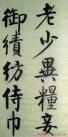 老少異糧妾
御績紡侍巾